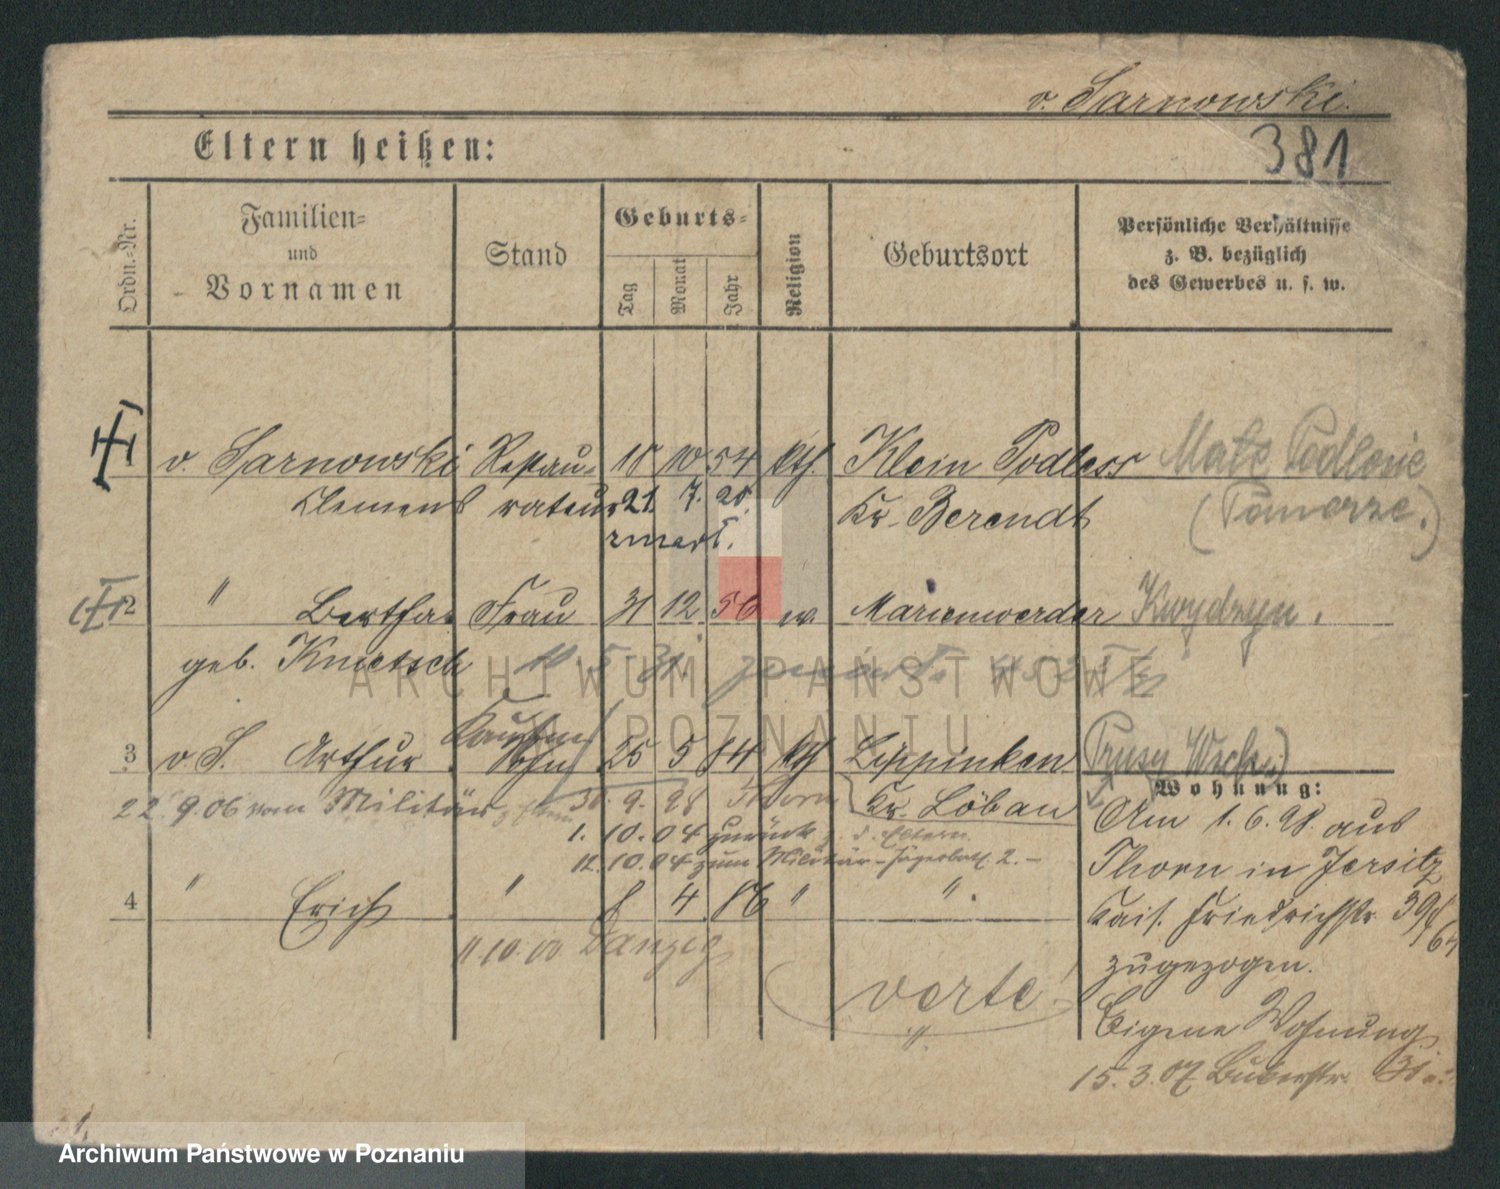 v. Sarnowski.
381
Eltern heißen:
Ordn.-Nr.
Familien-
und
Vornamen
Stand
Geburts-
Tag
Monat
Jahr
Religion
Geburtsort
Persönliche Verhältnisse
z. B. bezüglich
des Gewerbes u. s. w.
1 v. Sarnowski Restau- 18 10 54 kth. Klein Podless Małe Podlesie
Clemens rateur 21. 7. 20. Kr. Berendt (Pomorze.)
zmarł.
2 " Bertha Frau 31 12. 56 Marienwerder Kwydzyn.
geb. 11. 5. 31.
3 v. S. Arthur Kaufm Sohn 25 5 84 kth Lippinken Prusy Wschod)
22. 9. 06 vom Militär 30. 9. 98 Thorn Kr. Löbau
1. 10. 04 zurück z. d. Eltern
11. 10. 04 zum Militär-Jägerbatl. 2.-
4 " Erich " 8 4 86 " "
11.10.00 Danzig
verte!
Wohnung:
Am 1.6.98. aus
Thorn in Jersitz
Kais. Friedrichstr. 39/
zugezogen.
Eigene Wohnung
15. 3. 07
ARCHIWUM PAŃSTWOWE
W POZNANIU
Archiwum Państwowe w Poznaniu